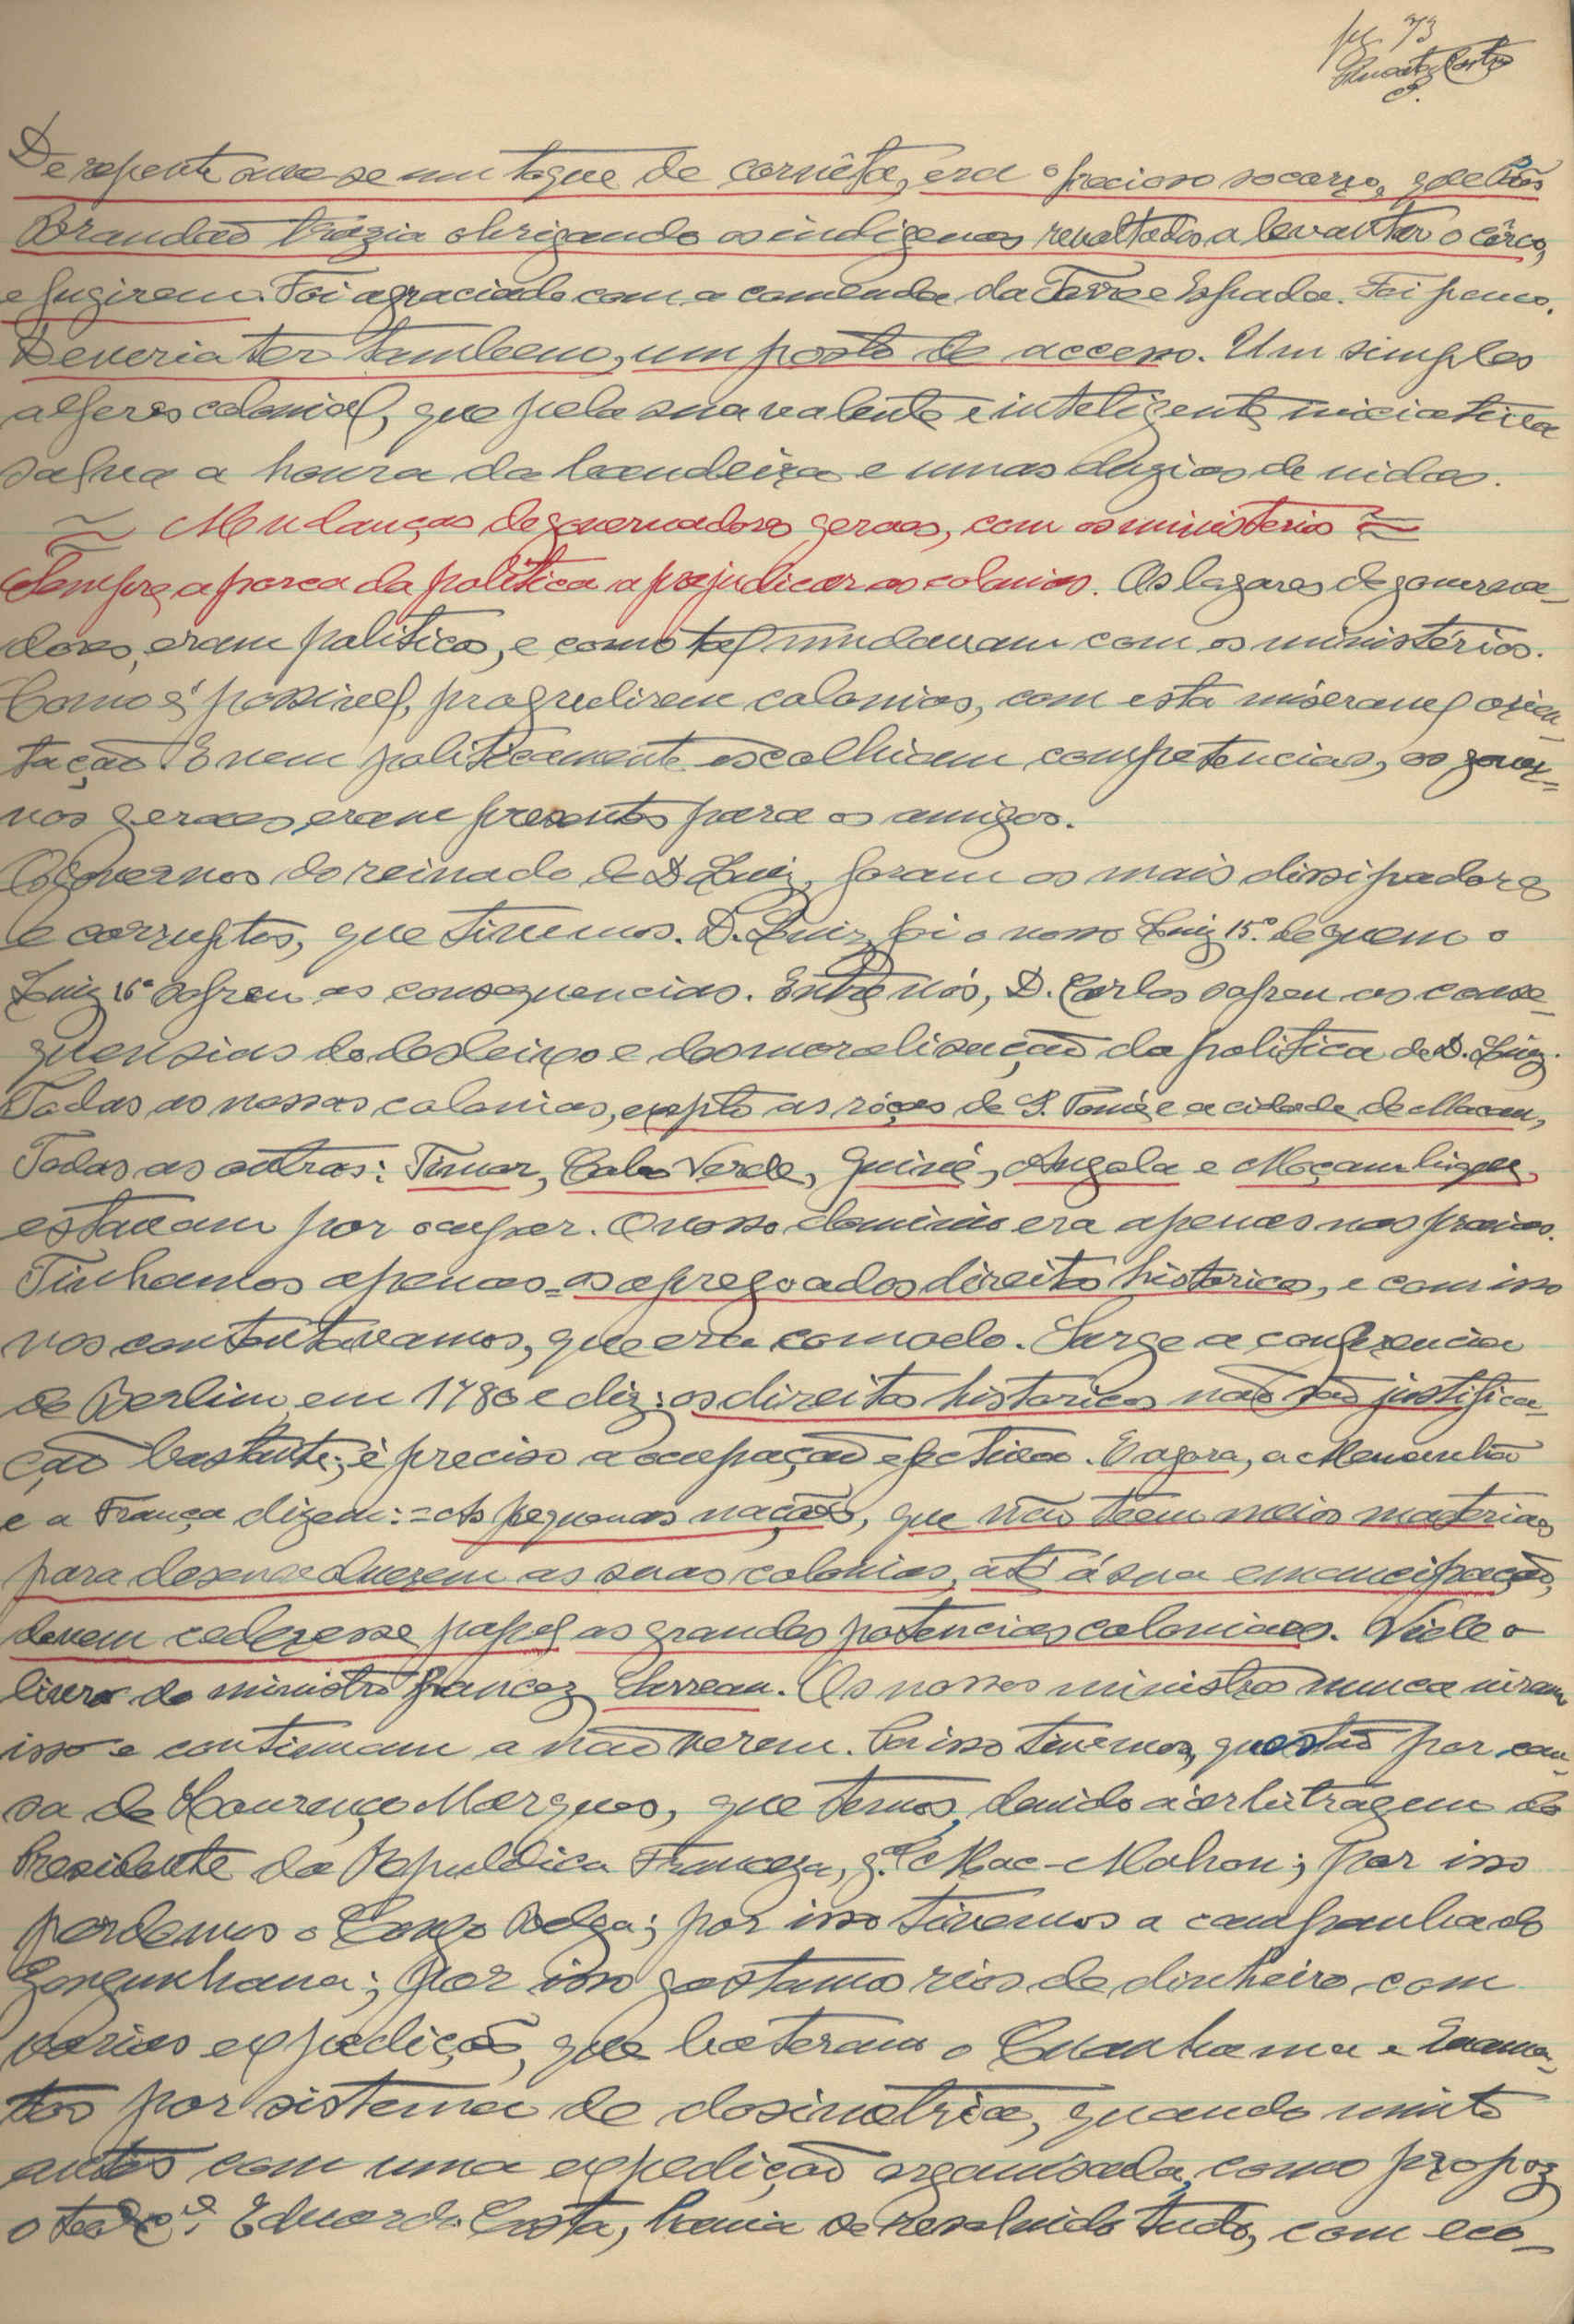 pg. 73
De repente ouve-se um toque de cornêta, era o precioso socorro, que
Brandão trazia obrigando os indigenas revoltados a levantar o cêrco,
e fugirem. Foi agraciado com a comenda da Torre e Espada. Foi pouco.
Deveria ter tambem, um posto de accesso. Um simples
alferes colonial, que pela sua valente e inteligente iniciativa
salva a honra da bandeira e umas duzias de vidas.
Mudanças de governadores geraes, com os ministerios
Sempre a porca da politica a prejudicar as colonias. Os lugares de governa-
dores, eram politicos, e como tal mudavam com os ministérios.
Como é possivel, progredirem colonias, com esta miseravel orien-
tação. E nem politicamente escolhiam competencias, os gover-
nos geraes, eram presentes para os amigos.
Os Governos do reinado de D. Luiz, foram os mais dissipadores
e corruptos, que tivemos. D. Luiz, foi o nosso Luiz 15.º de quem o
Luiz 16º sofreu as consequencias. Entre nós, D. Carlos sofreu as conse-
quensias do desleixo e desmoralisação da politica de D. Luiz.
Todas as nossas colonias, exepto as róças de S. Tomé e a cidade de Macau,
Todas as outras: Timor, Cabo Verde, Guiné, Angola e Moçambique,
estavam por ocupar. O nosso dominio era apenas nas praias.
Tinhamos apenas = os apregoados direitos historicos, e com isso
nos contentavamos, que era comodo. Surge a conferencia
de Berlim, em 1780 e diz: os direitos historicos não são justifica-
ção bastante; é preciso a ocupação efectiva. E agora, a Alemanha
e a França dizem: = As pequenas nações, que não teem meios materiaes
para desenvolverem as suas colonias, até á sua emancipação,
devem ceder esse papel as grandes potencias coloniaes. Vide o
livro do ministro francez Sarreau. Os nossos ministros nunca viram
isso e continuam a não verem. Por isso tivemos, questão por cau-
sa de Lourenço Marques, que temos, devido á arbitragem do
Presidente da Republica Franceza, g.al Mac-Mahon; por isso
perdemos o Congo Belga; por isso tivemos a campanha do
Gongunhana; por isso gastamos rios de dinheiro, com
varias expedições, que bateram o Cuanhama e Cuama-
tos por sistema de dosimetria, quando muito
antes com uma expedição organisada, como propoz
o ten.te c.el Eduardo Costa, havia se resolvido tudo, com eco-